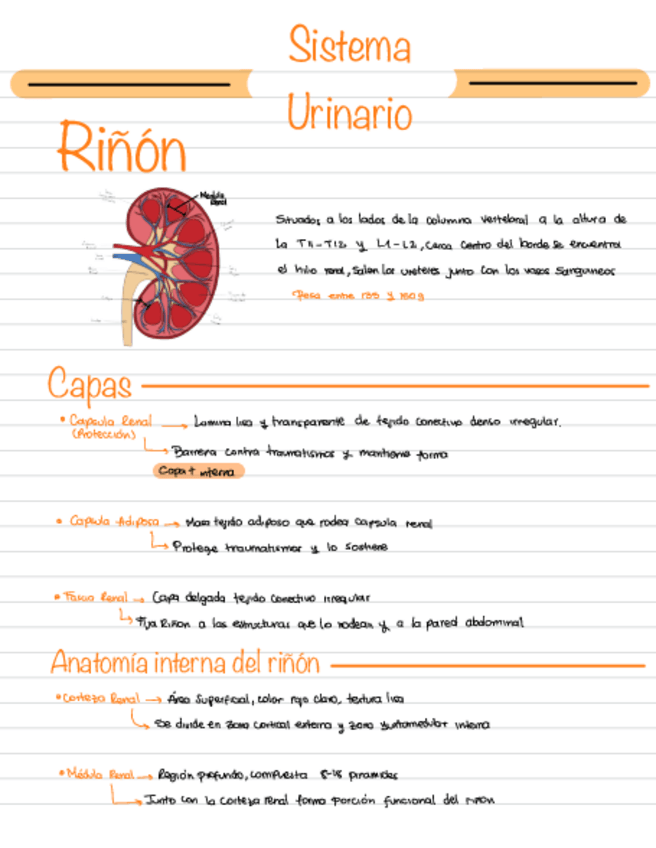 Sistema
Urinario
Riñón
Médula
Renal
Situados a los lados de la columna vertebral a la altura de
la T11-T12 y L1-L2, cerca centro del borde se encuentra
el hilio renal, salen los uréteres junto con los vasos sanguíneos
Pesa entre 135 y 150 g
Capas
• Capsula Renal → Lamina lisa y transparente de tejido conectivo denso irregular.
(Protección)
Barrera contra traumatismos y mantiene forma
Capa + interna
• Capsula Adiposa → Masa tejido adiposo que rodea capsula renal
Protege traumatismos y lo sostiene
• Fascia Renal → Capa delgada tejido conectivo irregular
Fija Riñon a las estructuras que lo rodean y a la pared abdominal
Anatomía interna del riñón
• Corteza Renal → Área Superficial, color rojo claro, textura lisa
Se divide en zona cortical externa y zona yuxtamedular interna
• Médula Renal → Región profunda, compuesta 8-18 piramides
Junto con la corteza renal forma porción funcional del riñon